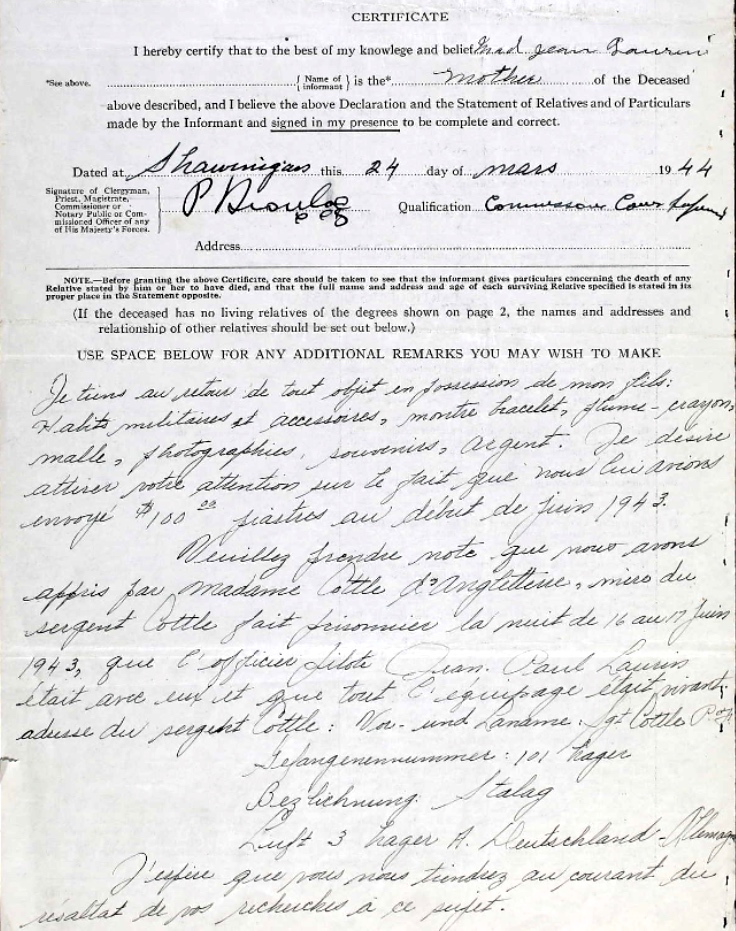 CERTIFICATE
I hereby certify that to the best of my knowlege and belief Mad Jean Laurin
*See above. { Name of informant } is the* mother of the Deceased
above described, and I believe the above Declaration and the Statement of Relatives and of Particulars
made by the Informant and signed in my presence to be complete and correct.
Dated at Shawinigan this 24 day of mars 1944
Signature of Clergyman,
Priest, Magistrate,
Commissioner or
Notary Public or Com-
missioned Officer of any
of His Majesty's Forces.
Qualification
Address
NOTE.—Before granting the above Certificate, care should be taken to see that the informant gives particulars concerning the death of any
Relative stated by him or her to have died, and that the full name and address and age of each surviving Relative specified is stated in its
proper place in the Statement opposite.
(If the deceased has no living relatives of the degrees shown on page 2, the names and addresses and
relationship of other relatives should be set out below.)
USE SPACE BELOW FOR ANY ADDITIONAL REMARKS YOU MAY WISH TO MAKE
Je tiens au retour de tout objet en possession de mon fils:
Habits militaires et accessoires, montre bracelet, plume-crayon,
malle, photographies, souvenirs, argent. Je désire
attirer votre attention sur le fait que nous lui avions
envoyé $100 00 piastres au début de Juin 1943.
Veuillez prendre note que nous avons
appris par madame Cottle d'Angleterre, mère du
sergent Cottle fait prisonnier la nuit de 16 au 17 Juin
1943, que l'officier pilote Jean. Paul Laurin
était avec eux et que tout l'équipage était vivant
adresse du sergent Cottle: Vor- und Zuname: Sgt Cottle
Gefangenennummer: 101 Lager
Bezeichnung: Stalag
Luft 3 Lager A. Deutschland - Allemagne
J'espère que vous nous tiendrez au courant du
résultat de vos recherches à ce sujet.